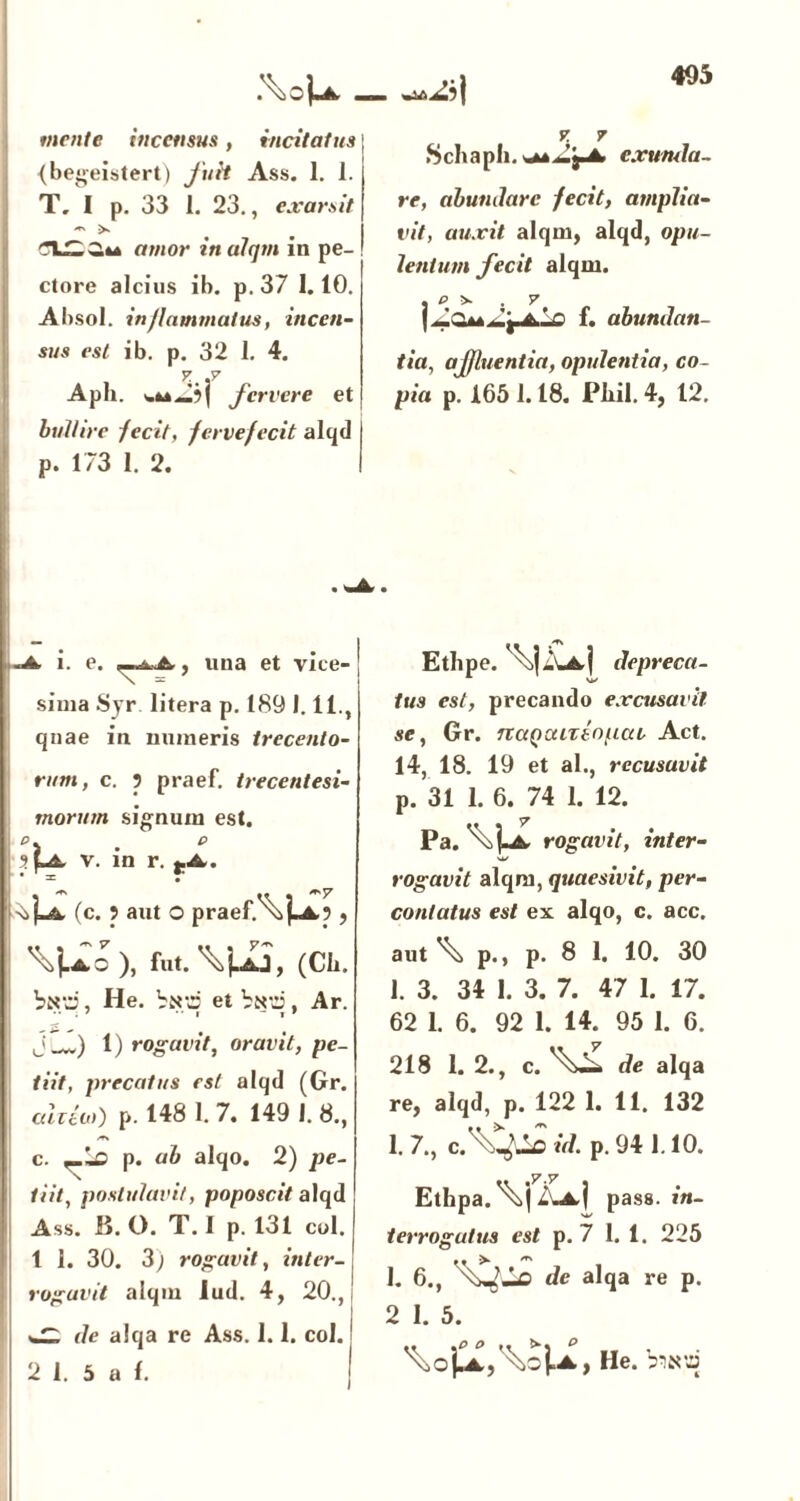 ܫܐܘܠ. — ܐܪܬܚ
495
mente incensus, incitatus
(begeistert) fuit Ass. l. l.
T. I p. 33 l. 23., exarsit
ܚܘܒܗ amor in alqm in pe-
ctore alcius ib. p. 37 l. 10.
Absol. inflammatus, incen-
sus est ib. p. 32 l. 4.
Aph. ܐܪܬܚ fervere et
bullire fecit, fervefecit alqd
p. 173 l. 2.
Schaph. ܫܪܬܚ exunda-
re, abundare fecit, amplia-
vit, auxit alqm, alqd, opu-
lentum fecit alqm.
ܡܫܪܬܚܘܬܐ f. abundan-
tia, affluentia, opulentia, co-
pia p. 165 l. 18. Phil. 4, 12.
. ܫ .
ܫ i. e. ܫܝܢ, una et vice-
sima Syr. litera p. 189 l. 11.,
quae in numeris trecento-
rum, c. ܕ praef. trecentesi-
morum signum est.
ܫܐܕܐ v. in r. ܫܕ.
ܫܐܠ (c. ܕ aut ܘ praef. ܕܫܐܠ,
ܘܫܐܠ), fut. ܢܫܐܠ, (Ch.
שאל, He. שאל et שאל, Ar.
سأل) 1) rogavit, oravit, pe-
tiit, precatus est alqd (Gr.
αἰτέω) p. 148 l. 7. 149 l. 8.,
c. ܡܢ p. ab alqo. 2) pe-
tiit, postulavit, poposcit alqd
Ass. B. O. T. I p. 131 col.
1 l. 30. 3) rogavit, inter-
rogavit alqm Iud. 4, 20.,
ܒ de alqa re Ass. l. l. col.
2 l. 5 a f.
Ethpe. ܐܫܬܐܠ depreca-
tus est, precando excusavit
se, Gr. παραιτέομαι Act.
14, 18. 19 et al., recusavit
p. 31 l. 6. 74 l. 12.
Pa. ܫܐܠ rogavit, inter-
rogavit alqm, quaesivit, per-
contatus est ex alqo, c. acc.
aut ܠ p., p. 8 l. 10. 30
l. 3. 34 l. 3. 7. 47 l. 17.
62 l. 6. 92 l. 14. 95 l. 6.
218 l. 2., c. ܥܠ de alqa
re, alqd, p. 122 l. 11. 132
l. 7., c. ܡܛܠ id. p. 94 l. 10.
Ethpa. ܐܫܬܐܠ pass. in-
terrogatus est p. 7 l. 1. 225
l. 6., ܡܛܠ de alqa re p.
2 l. 5.
ܫܐܘܠ, ܫܐܘܠ, He. שאול